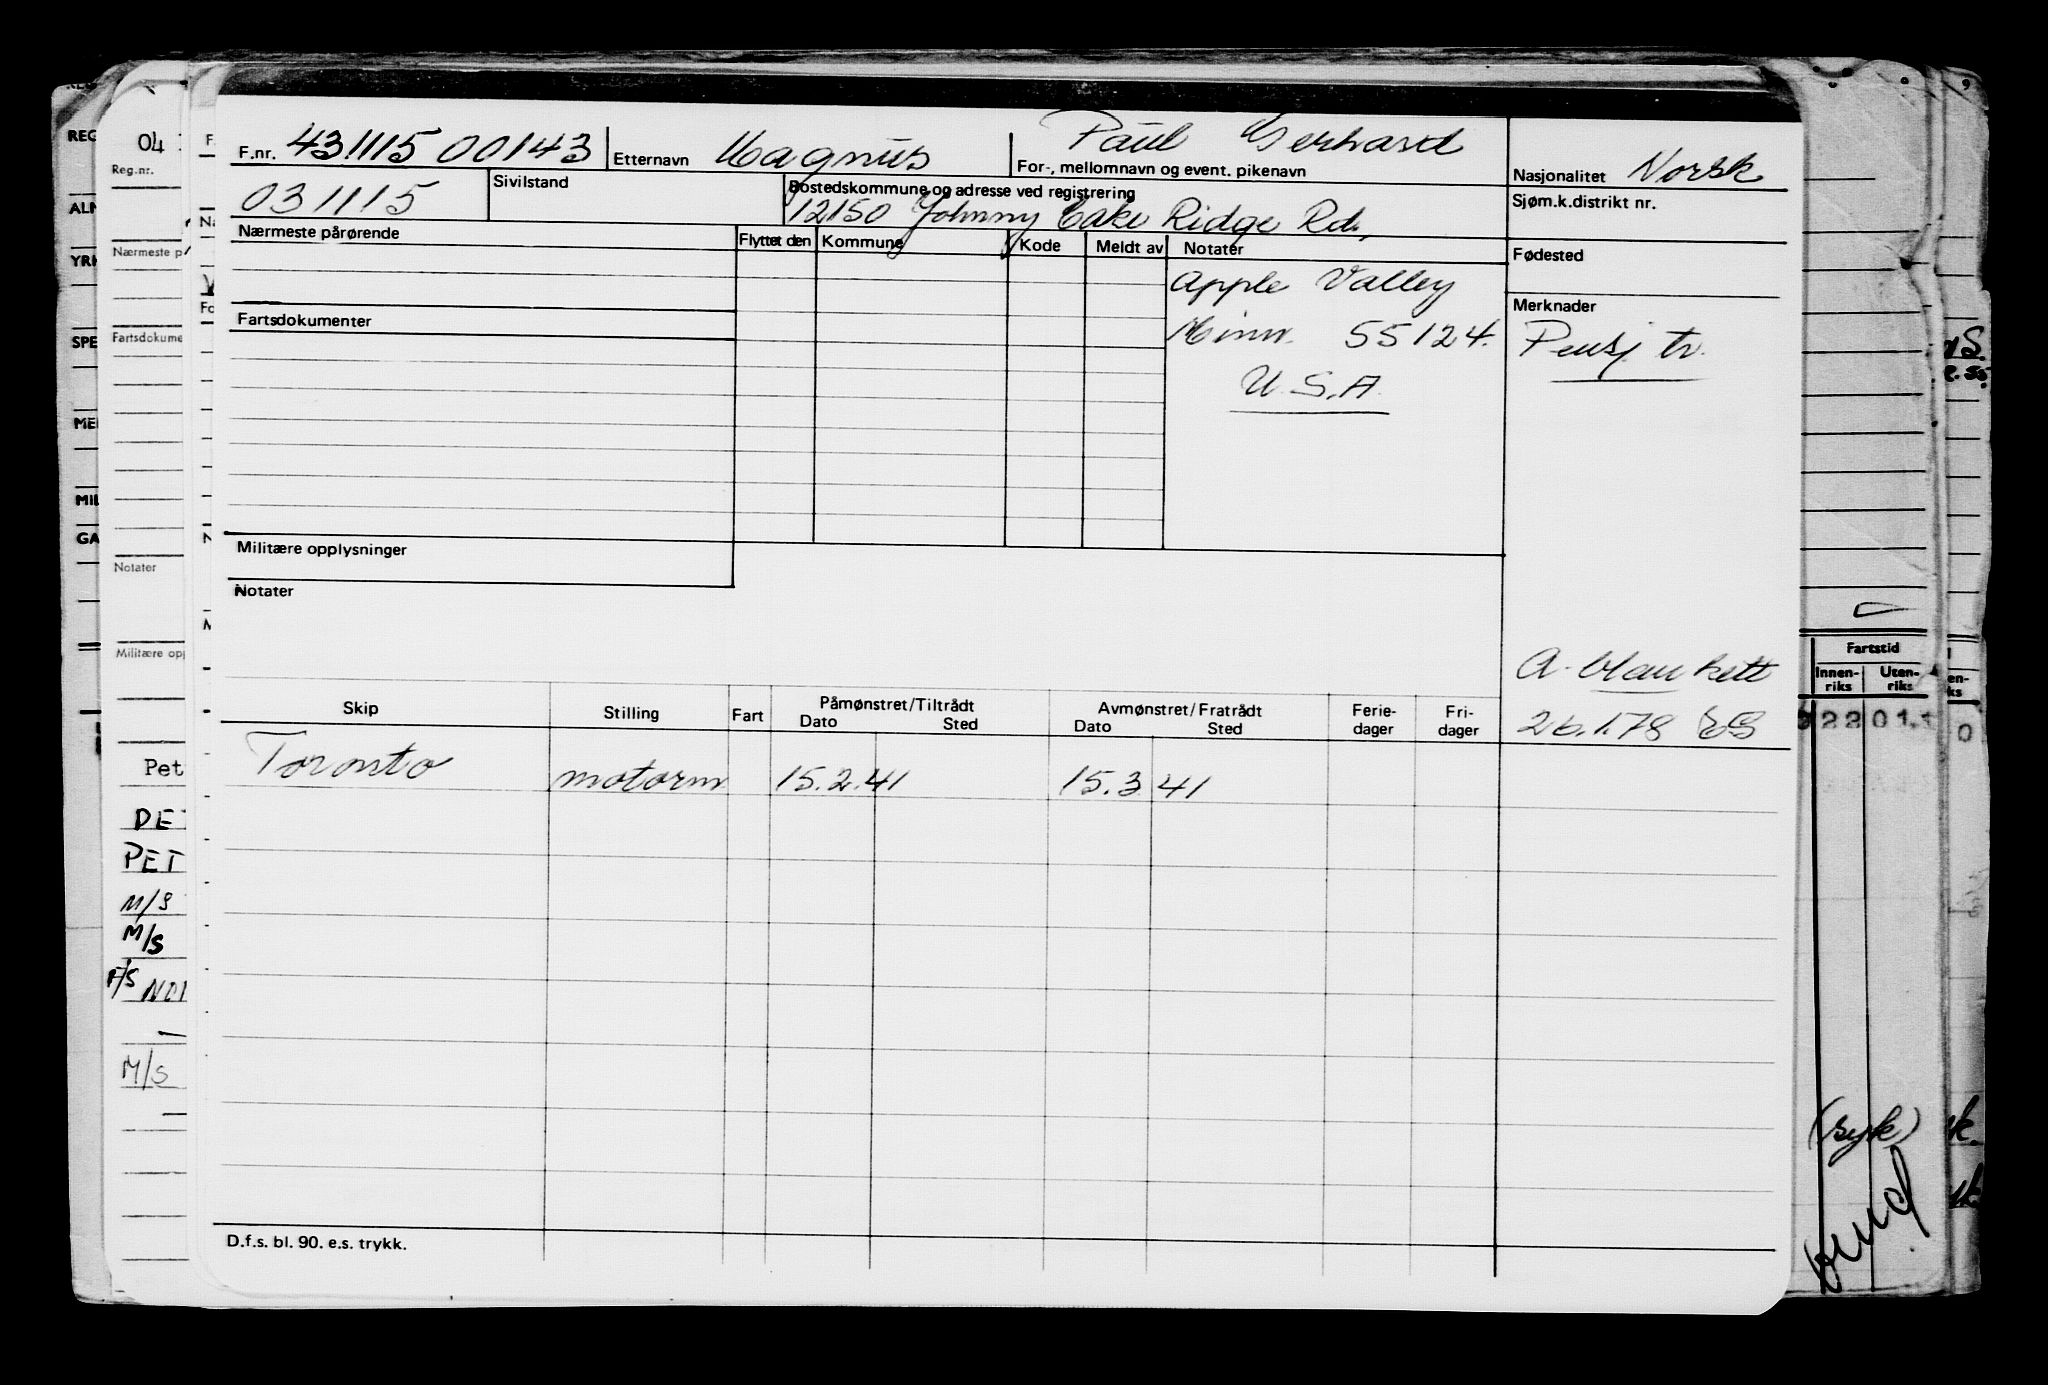 F.nr. 431115 00143 Etternavn Magnus Paul Gerhard
For-, mellomnavn og event. pikenavn
Nasjonalitet Norsk
031115 Sivilstand Bostedskommune og adresse ved registrering
12150 Johnny Cake Ridge Rd.,
Sjøm.k.distrikt nr.
Nærmeste pårørende Flyttet den Kommune Kode Meldt av Notater
Fødested
Apple Valley
Minn. 55124.
U.S.A.
Merknader
Pensj tr.
Fartsdokumenter
Militære opplysninger
Notater
A-blankett
26.1.78
Skip Stilling Fart Påmønstret/Tiltrådt Avmønstret/Fratrådt Ferie- Fri-
Dato Sted Dato Sted dager dager
Toronto motorm 15.2.41 15.3.41
D.f.s. bl. 90. e.s. trykk.
REG
ALN
YRK
SPE
MEI
MIL
GA
04
Reg.nr.
Nærmeste p
Fartsdokume
Notater
Militære opp
Pet
DET
PET
M/S
M/S
F/S NOR
M/S
Fartstid
Innen- Uten-
riks riks
22 01
0
(syk)